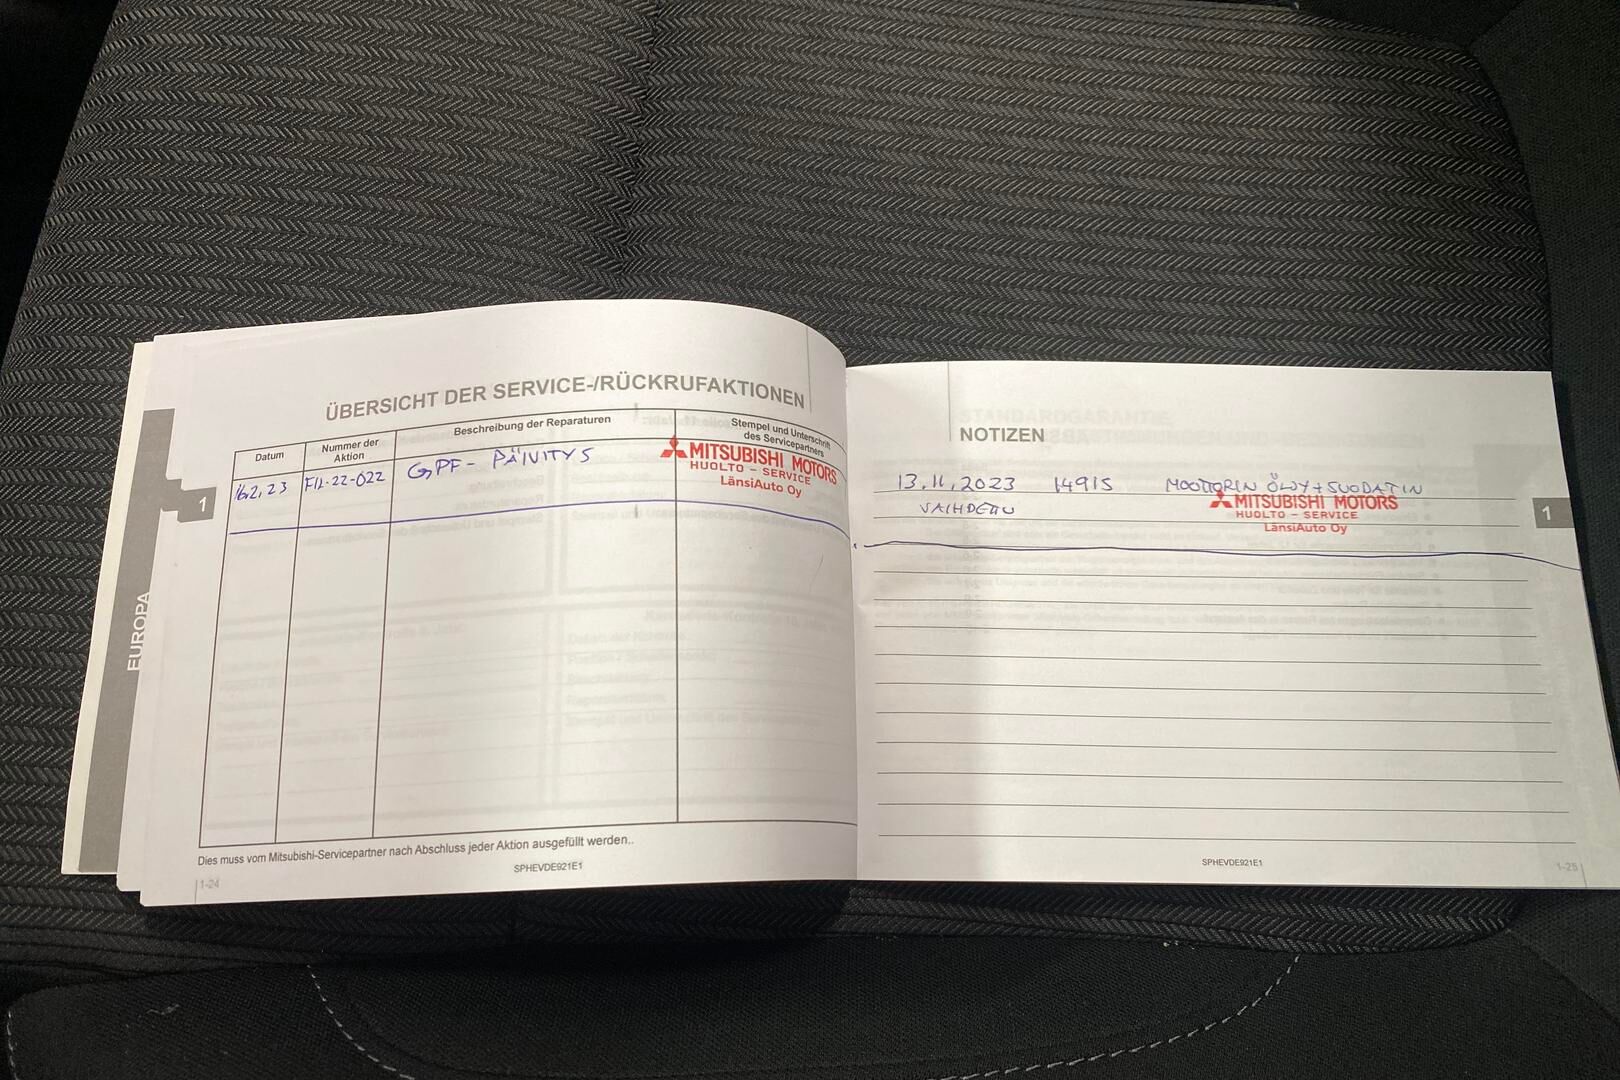 ÜBERSICHT DER SERVICE-/RÜCKRUFAKTIONEN
Datum
Nummer der
Aktion
Beschreibung der Reparaturen
Stempel und Unterschrift
des Servicepartners
16.2.23 FIL-22-022 GPF- PÄIVITYS
MITSUBISHI MOTORS
HUOLTO - SERVICE
LänsiAuto Oy
1
EUROPA
Dies muss vom Mitsubishi-Servicepartner nach Abschluss jeder Aktion ausgefüllt werden..
SPHEVDE921E1
1-24
NOTIZEN
13.11.2023 14915 MOOTTORIN ÖLJY+SUODATIN
VAIHDETTU
MITSUBISHI MOTORS
HUOLTO - SERVICE
LänsiAuto Oy
1
SPHEVDE921E1
1-25